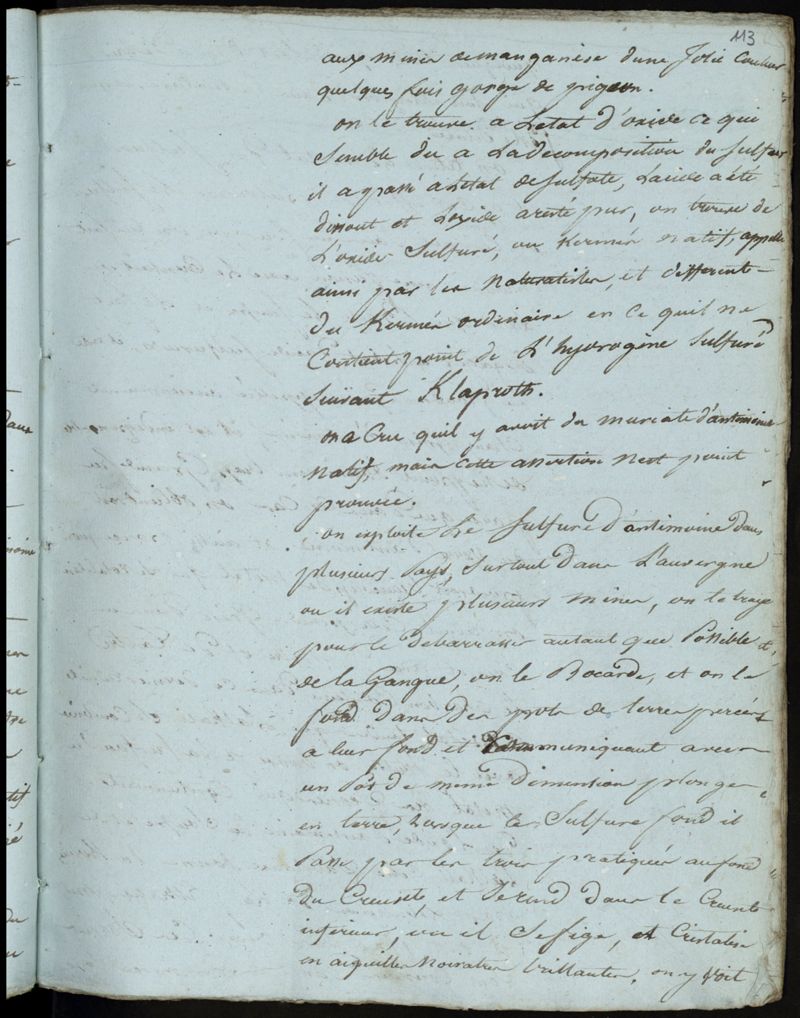 113
aux mines de manganèse d'une Jolie Couleur
quelques fois gorge de pigeon.
on le trouve a L'etat d'oxide ce qui
Semble du a La decomposition du Sulfure
il a passé a L'etat de sulfate, L'acide a été
dissout et L'oxide a resté pur, on trouve de
L'oxide Sulfuré, ou Kermés natif, appellé
ainsi par les Naturalistes, et different
du Kermés ordinaire en ce quil ne
Contient point de L'hydrogène Sulfuré
Suivant Klaproth.
on a Cru quil y avoit du muriate d'antimoine
natif, mais cette assertion n'est point
prouvée.
on exploite le Sulfure d'antimoine dans
plusieurs Pays, Surtout dans L'auvergne
ou il existe plusieurs mines, on le traye
pour le debarrasser autant que Possible
de la Gangue, on le Bocarde, et on le
fond dans des pots de terre percés
a leur fond et Communiquant avec
un Pôs de meme dimension plongé
en terre, Lorsque le Sulfure fond il
Passe par les trois pratiqués au fond
du Creuset, et se rend dans le Creuset
inferieur, ou il se fige, et Cristalise
en aiguilles Noiratres brillantes, on y Voit